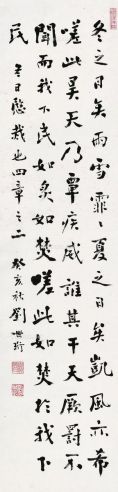 冬之日矣雨雪霏〻夏之日矣凱風亦希
嗟此昊天乃覃疾威誰其干天厥罰不
聞而我下民如炎如焚嗟此如焚於我下
民 冬日愍哉也四章之二 癸亥秋劉世珩